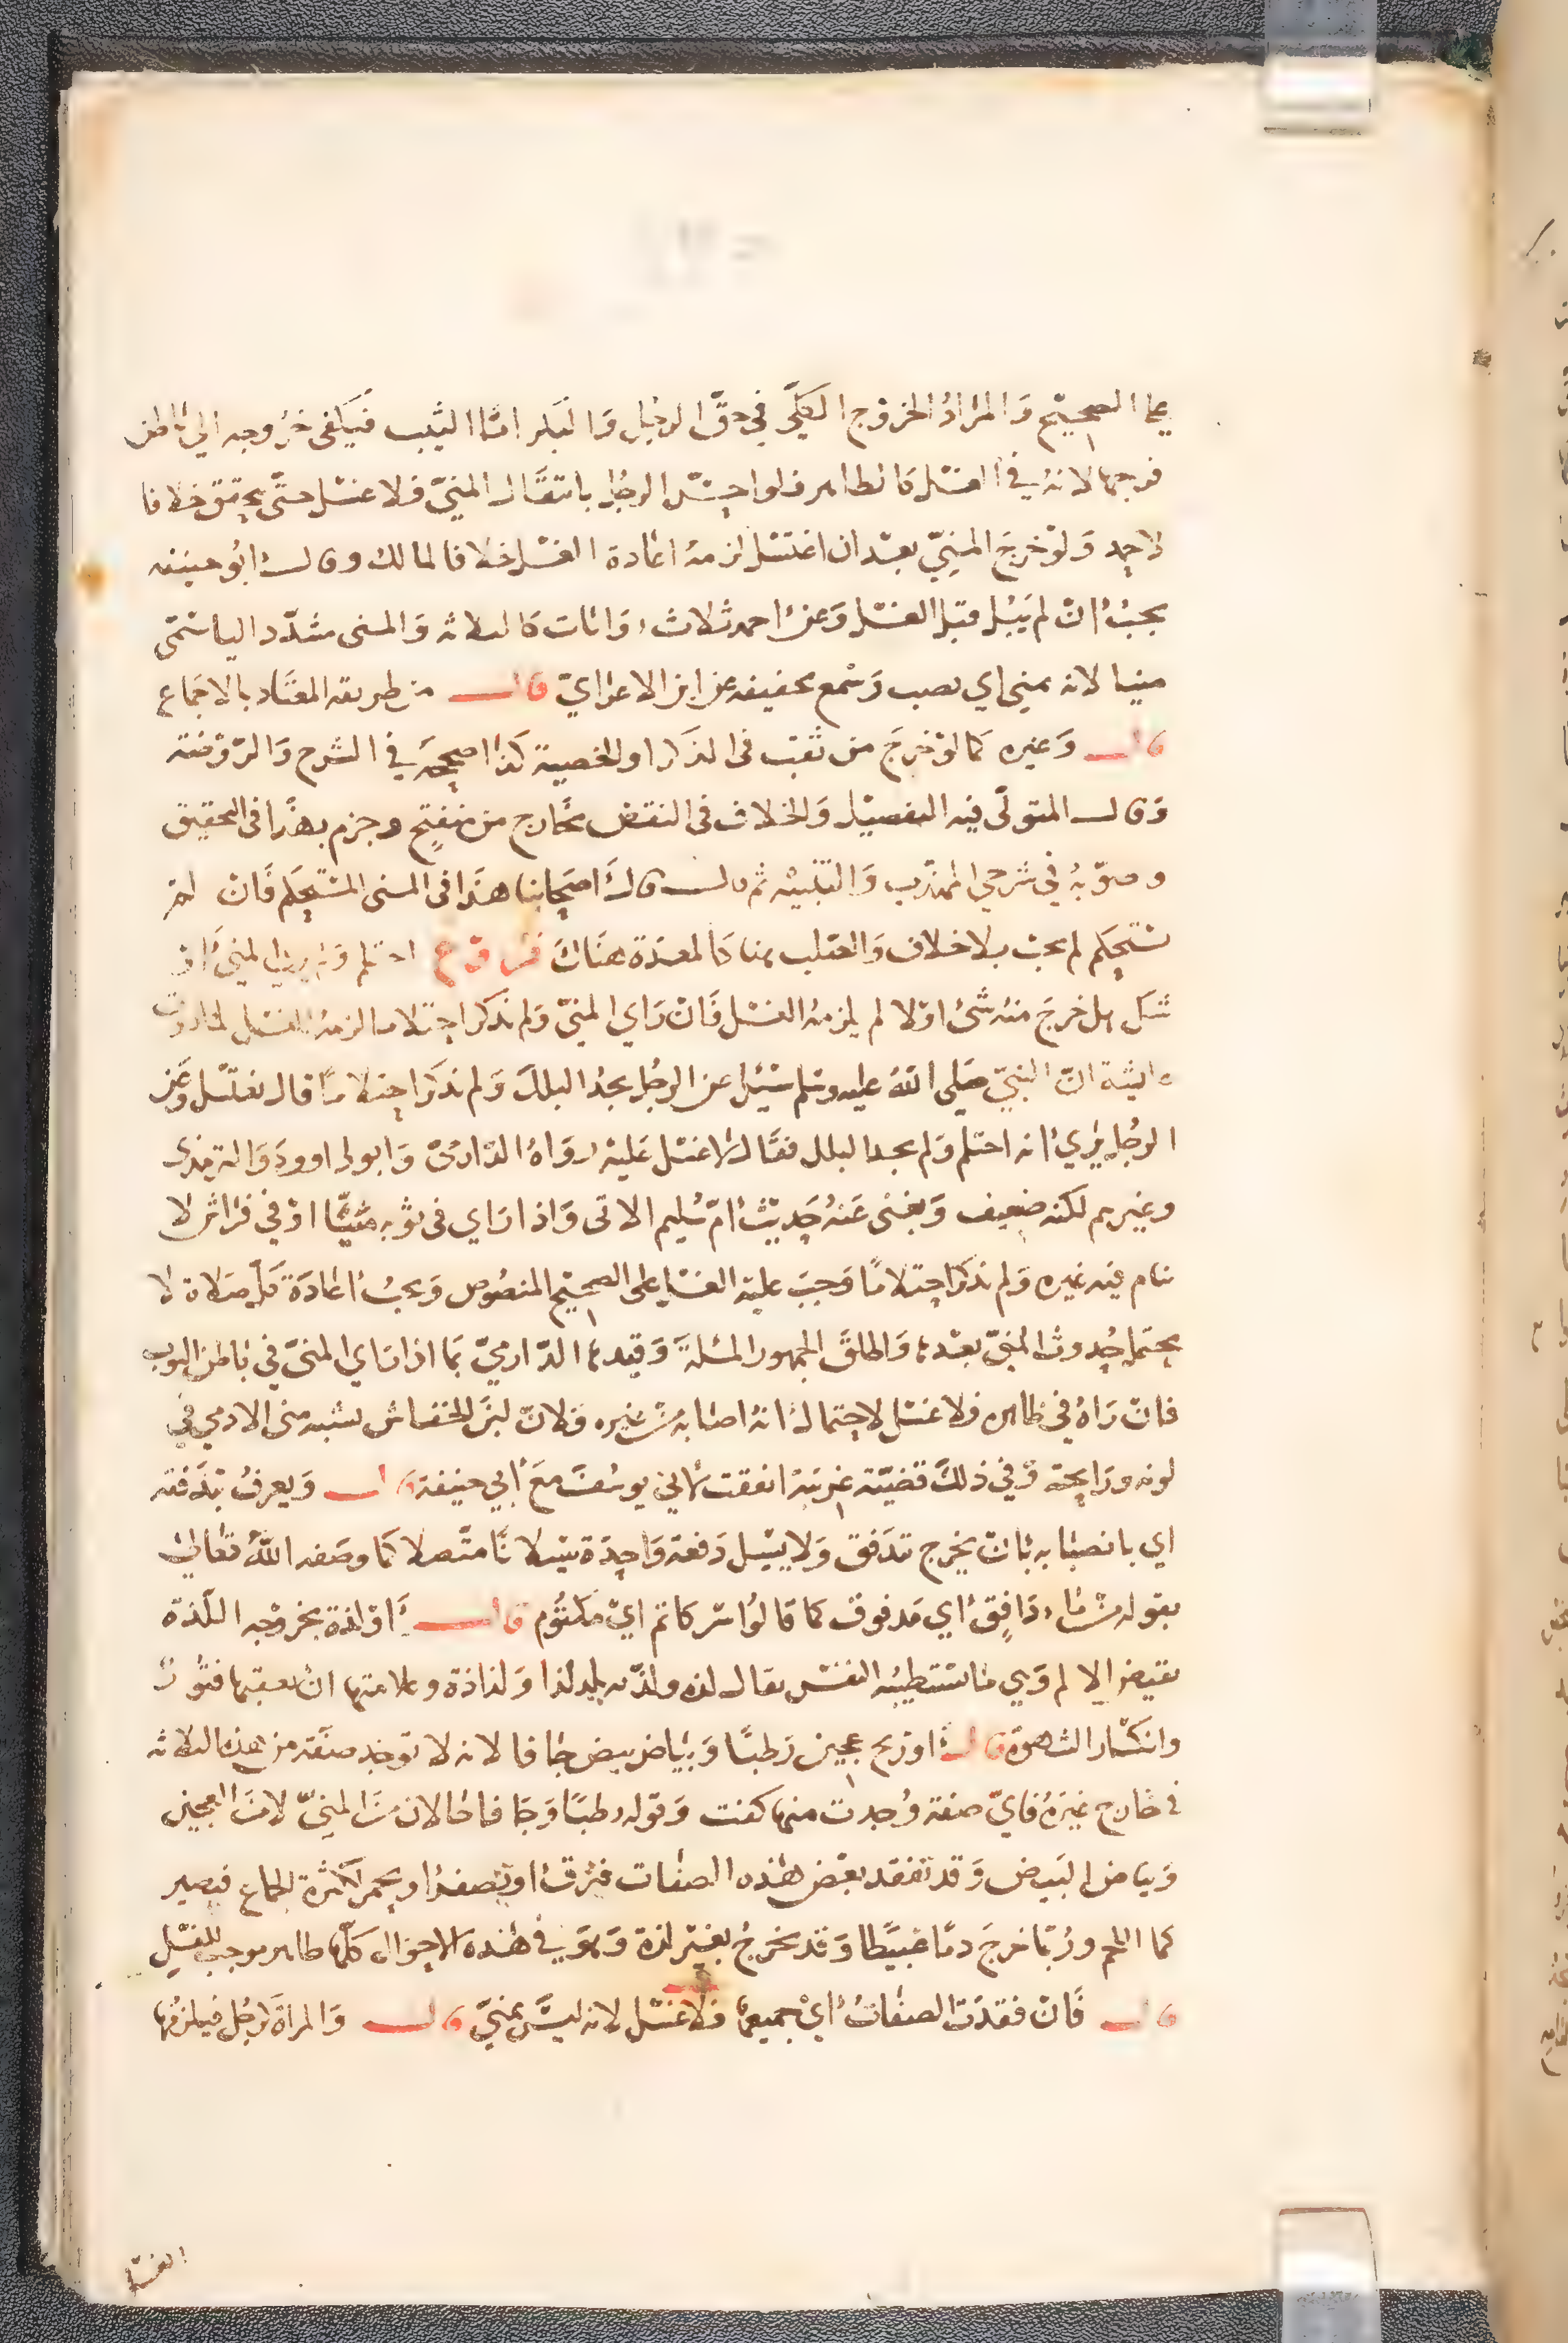 على الصحيح وَالمرَادُ الخروج الكلّي في حقّ الرجل وَالبكر امّا الثيب فيكفي خرُوجه الى باطن
فرجها لانهُ في الغسل كالظاهر فلو احسّ الرجُل بانتقَال المنيّ فلا غسل حتّى يتحقق خلافا
لاحمد وَلوْ خرجَ المنِيّ بعْد ان اغتسَل لزمهُ اعَادة الغسْل خلافا لمالك وقال ابُو حنيفه
يجبُ انْ لم يَبُل قبل الغسل وَعن احمد ثلاث روَايات كالثلاثه وَالمنى مشدّد الياسُمّى
منيا لانه يمنى اي يصب وَسُمع تخفيفه عن ابن الاعرَابيّ قال من طريقه المعتَاد بالاجمَاع
قال وَغيره كما لوْ خرجَ من ثقب فى الذكر او الخصية كذا صححهَ في الشرح وَالرّوْضة
وَقال المتولّى فيه التفصيْل وَالخلاف فى النقض بخَارج من منفتِح وجزم بهذَا فى التحقيق
وصوّبهُ في شرحي المهذب وَالتنبيْه ثم قال قالَ اصحَابنا هذَا فى المنى المستحكم فَانْ لمْ
يستحكم لم يجبْ بلا خلاف وَالصّلب هنا كالمعدَة هنَاك فرُوْع احتلم وَلم يرَ المنيَّ اوْ
شك هل خرجَ منهُ شئ اوْ لا لم يلزمهُ الغسْل فَانْ رَاي المنيّ وَلم يذكر احتلاما لزمهُ الغسْل لمَا روت
عايشة انّ النبيّ صَلى اللهُ عليه وسَلم سئِل عن الرجُل يجدُ البللَ وَلم يذكر احتلامًا قال يغتسل وَعن
الرجُل يرَيُ انه احتلم وَلم يجد البلل فقَال لا غسْل عَليْه روَاهُ الدّارميّ وَابو داوودَ وَالترمذى
وغيرهم لكنه ضعيف وَيغنى عَنهُ حَديثُ امّ سُليم الاتى وَاذا رَاي فى ثوْبه منيًّا اوْ في فرَاش لا
ينام فيه غيره وَلم يذكر احتلامًا وَجبَ عليْه الغسْل على الصحيْح المنصُوص وَيجبُ اعَادَة كلّ صَلاة لا
يحتمل حُدوث المنيّ بعْدها وَاطلقَ الجمهور المسْلة وَقيدها الدّارميّ بمَا اذا رَاي المنيّ في بَاطن الثوب
فانْ رَاهُ في ظاهره فلا غسْل لاحتمالُ انهُ اصَابهُ من غيره وَلانّ لبنَ الخفاش يشبه منى الادمي في
لونه ورَايحته وَفي ذلكَ قضيّة غريبَة اتفقت لابي يوسُف معَ ابي حنيفة قال وَيعرفُ بتدَفقه
اي بانصبَابه بَانْ يخرج بتدَفق وَلا يسيْل دَفعة وَاحدَة سَيلانًا متّصلا كمَا وصَفه اللهُ تعَالى
بقوله من مَاء دَافِق اي مَدفوق كما قالوُا سر كاتم ايْ مكتُوم قال اوْ لذة بخروْجه اللّذة
نقيض الالم وَهي مَا تستطيبُه النفسْ يقال لذه ولذّ به يلذ لذا وَلذاذة وعلامتها انْ يعقبها فتُورٌ
وانكسَار الشهوَة قال اوْ ريح عجين رَطبًا وَبيَاض بيض جافا لانه لا توجد صفَة من هذه الثلاثه
في خَارج غيرَهُ فايّ صفة وُجدت منها كفت وَقوله رطبًا وَجافا حالان منَ المنيّ لا منَ العجين
وَبيَاض البَيض وَقد تفقد بعْض هَذه الصفَات فيرْق اوْ يصفرُ او يحمر لكثرة الجمَاع فيَصير
كماء اللحم ورُبما خرجَ دمًا عَبيْطا وَقد يخرجُ بغيْر لذة وَهوَ في هَذه الاحوَال كلّها طاهر موجب للغسْل
قال فَانْ فقدَت الصفَاتُ ايْ جميعهَا فلا غسْل لانه ليسَ بمنيّ قال وَالمراَة كرجُل فيلزمُها
الغسْل